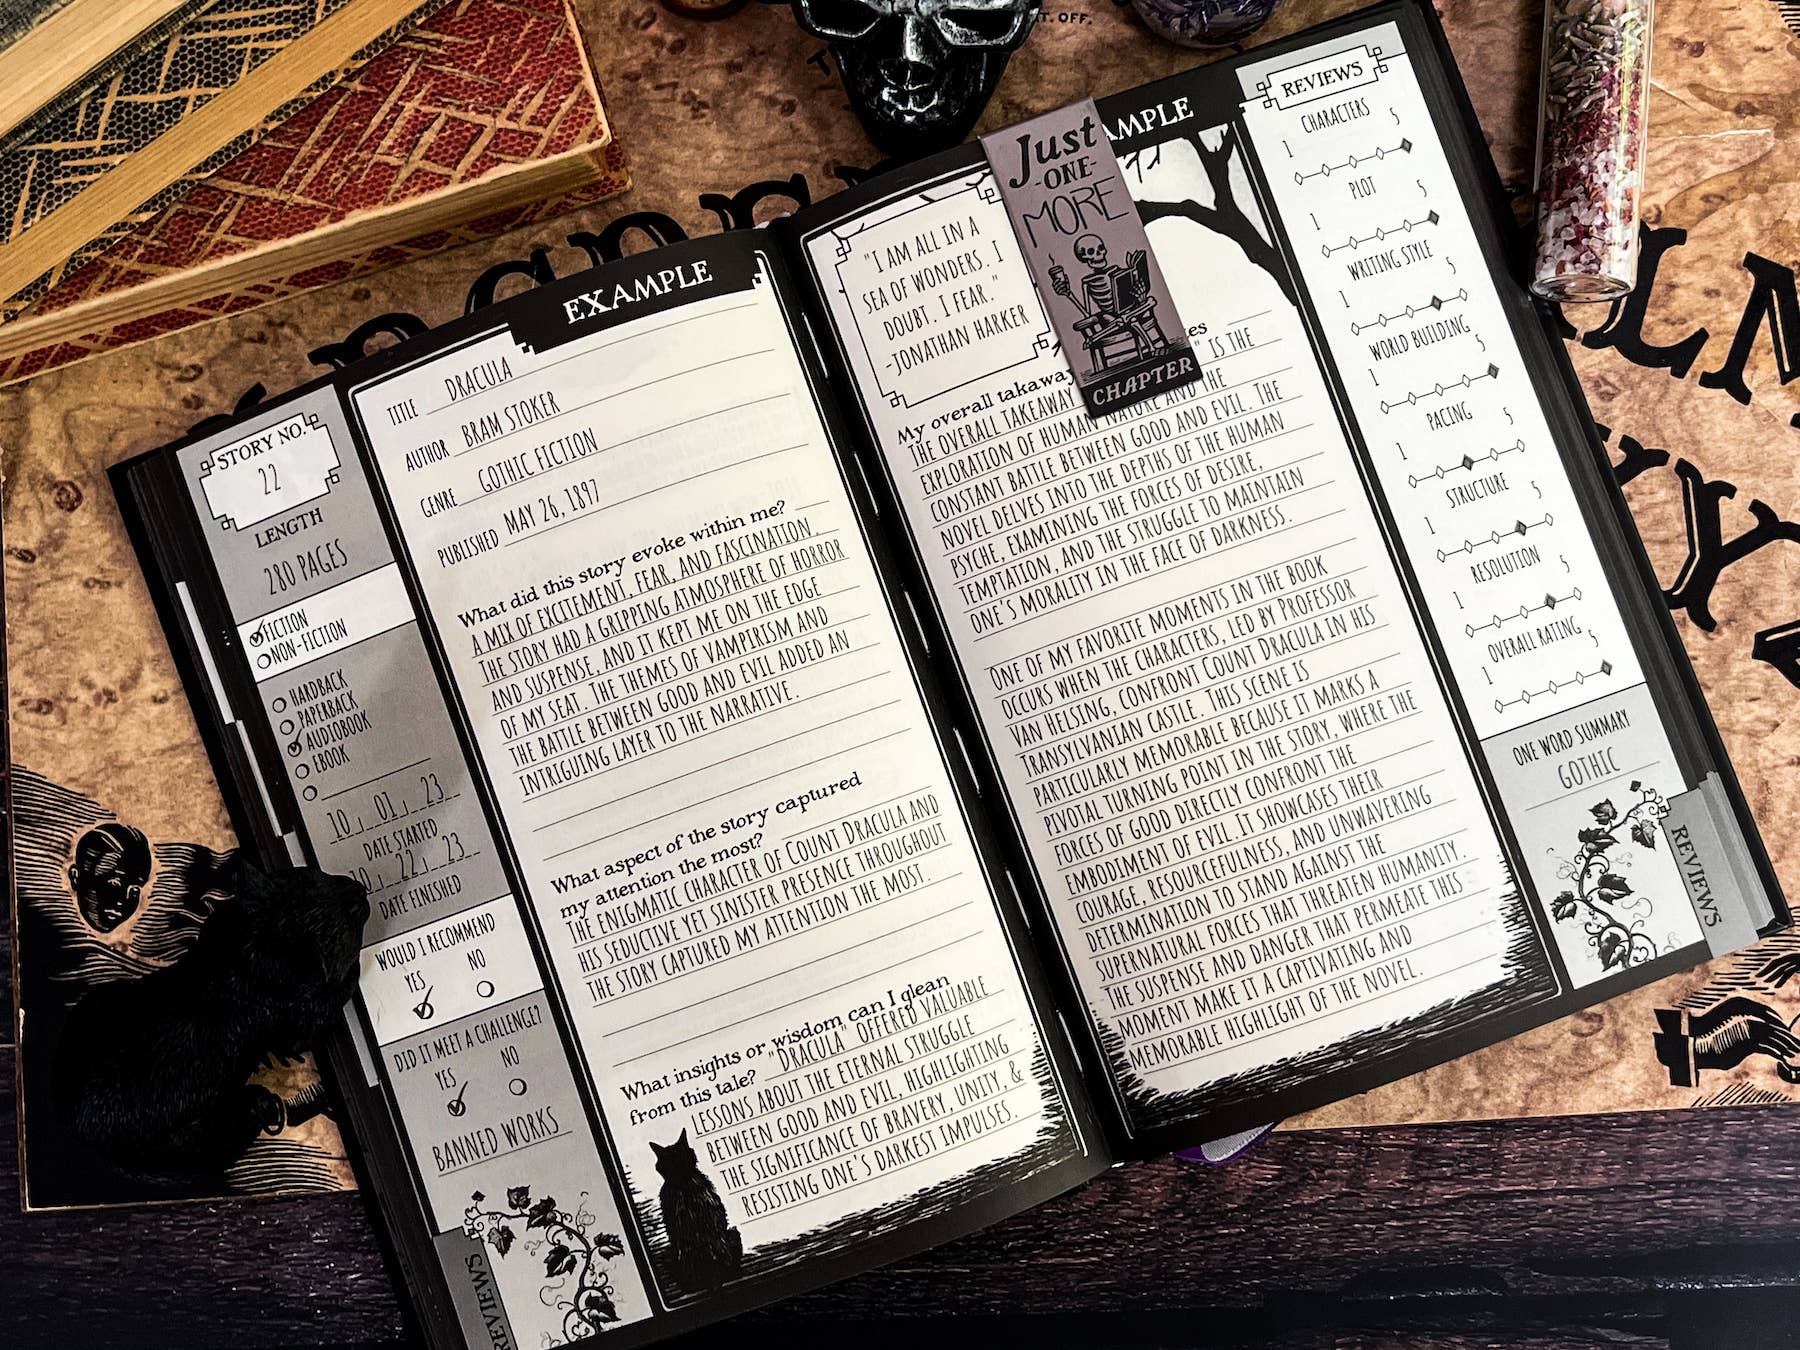 EXAMPLE
STORY NO.
22
LENGTH
280 PAGES
FICTION
NON-FICTION
HARDBACK
PAPERBACK
AUDIOBOOK
EBOOK
10 01 23
DATE STARTED
10 22 23
DATE FINISHED
WOULD I RECOMMEND
YES NO
DID IT MEET A CHALLENGE?
YES NO
BANNED WORKS
REVIEWS
TITLE DRACULA
AUTHOR BRAM STOKER
GENRE GOTHIC FICTION
PUBLISHED MAY 26, 1897
What did this story evoke within me?
A MIX OF EXCITEMENT, FEAR, AND FASCINATION.
THE STORY HAD A GRIPPING ATMOSPHERE OF HORROR
AND SUSPENSE, AND IT KEPT ME ON THE EDGE
OF MY SEAT. THE THEMES OF VAMPIRISM AND
THE BATTLE BETWEEN GOOD AND EVIL ADDED AN
INTRIGUING LAYER TO THE NARRATIVE.
What aspect of the story captured
my attention the most?
THE ENIGMATIC CHARACTER OF COUNT DRACULA AND
HIS SEDUCTIVE YET SINISTER PRESENCE THROUGHOUT
THE STORY CAPTURED MY ATTENTION THE MOST.
What insights or wisdom can I glean
from this tale? "DRACULA" OFFERED VALUABLE
LESSONS ABOUT THE ETERNAL STRUGGLE
BETWEEN GOOD AND EVIL, HIGHLIGHTING
THE SIGNIFICANCE OF BRAVERY, UNITY, &
RESISTING ONE'S DARKEST IMPULSES.
"I AM ALL IN A
SEA OF WONDERS. I
DOUBT. I FEAR."
-JONATHAN HARKER
Just
-ONE-
MORE
CHAPTER
My overall
THE OVERALL TAKEAWAY " IS THE
EXPLORATION OF HUMAN NATURE AND THE
CONSTANT BATTLE BETWEEN GOOD AND EVIL. THE
NOVEL DELVES INTO THE DEPTHS OF THE HUMAN
PSYCHE, EXAMINING THE FORCES OF DESIRE,
TEMPTATION, AND THE STRUGGLE TO MAINTAIN
ONE'S MORALITY IN THE FACE OF DARKNESS.
ONE OF MY FAVORITE MOMENTS IN THE BOOK
OCCURS WHEN THE CHARACTERS, LED BY PROFESSOR
VAN HELSING, CONFRONT COUNT DRACULA IN HIS
TRANSYLVANIAN CASTLE. THIS SCENE IS
PARTICULARLY MEMORABLE BECAUSE IT MARKS A
PIVOTAL TURNING POINT IN THE STORY, WHERE THE
FORCES OF GOOD DIRECTLY CONFRONT THE
EMBODIMENT OF EVIL. IT SHOWCASES THEIR
COURAGE, RESOURCEFULNESS, AND UNWAVERING
DETERMINATION TO STAND AGAINST THE
SUPERNATURAL FORCES THAT THREATEN HUMANITY.
THE SUSPENSE AND DANGER THAT PERMEATE THIS
MOMENT MAKE IT A CAPTIVATING AND
MEMORABLE HIGHLIGHT OF THE NOVEL.
REVIEWS
CHARACTERS
1 5
PLOT
1 5
WRITING STYLE
1 5
WORLD BUILDING
1 5
PACING
1 5
STRUCTURE
1 5
RESOLUTION
1 5
OVERALL RATING
1 5
ONE WORD SUMMARY
GOTHIC
REVIEWS